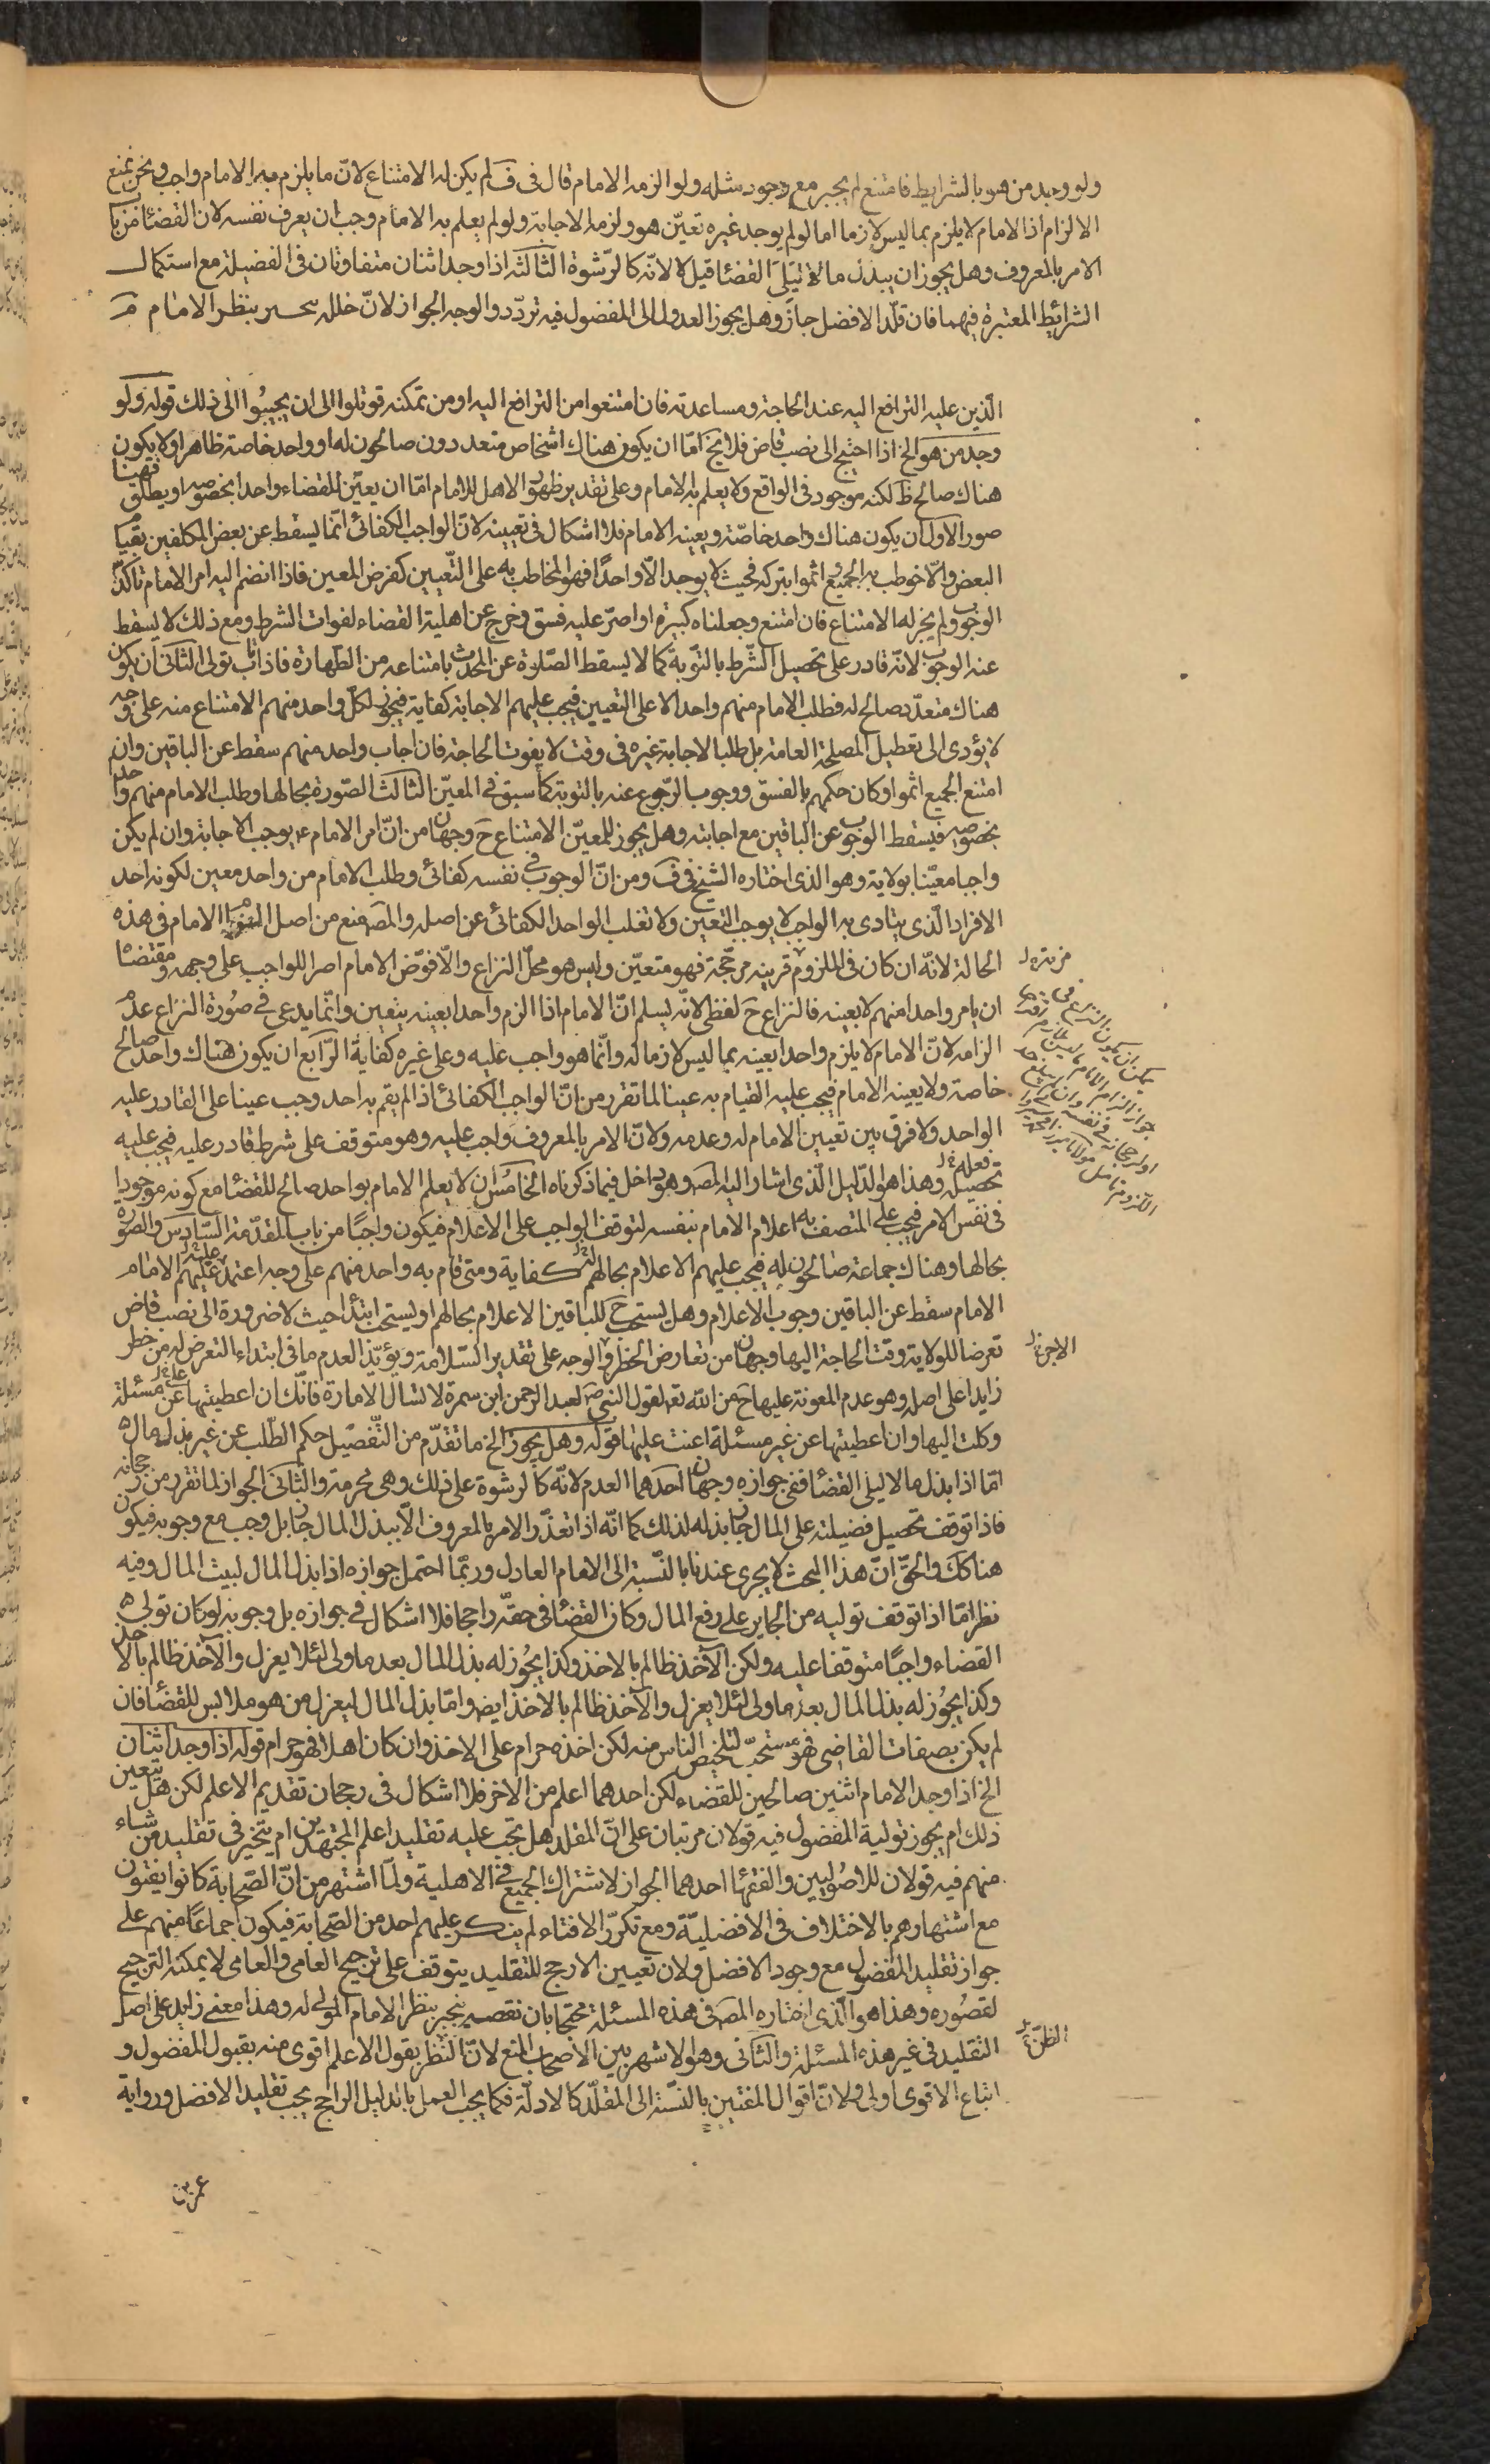 ولو وجد من هو بالشرايط فامتنع لم يجبر مع وجود مثله ولو الزمه الامام قال في ف لم يكن له الامتناع لانّ ما يلزم به الامام واجب ونحن نمنع
الالزام اذ الامام لا يلزم بما ليس لازما اما لو لم يوجد غيره تعيّن هو ولزمه الاجابة ولو لم يعلم به الامام وجب ان يعرف نفسه لان القضاء من باب
الامر بالمعروف وهل يجوز ان يبذل مالا ليلي القضاء قيل لا لانّه كالرّشوة الثالثة اذا وجد اثنان متفاوتان في الفضيلة مع استكمال
الشرائط المعتبرة فيهما فان قلّد الافضل جاز وهل يجوز العدول الى المفضول فيه تردّد والوجه الجواز لانّ خلله ينجبر بنظر الامام
الّذين عليه الترافع اليه عند الحاجة ومساعدته فان امتنعوا من الترافع اليه او من تمكنه قوتلوا الى ان يجيبوا الى ذلك قوله ولو
وجد من هو الخ اذا احتيج الى نصب قاض فلا يخ امّا ان يكون هناك اشخاص متعددون صالحون له او واحد خاصة ظاهر او لا يكون
هناك صالح ظ لكنه موجود في الواقع ولا يعلم به الامام وعلى تقدير ظهور الاهل للامام امّا ان يعيّن للقضاء واحدا بخصوصه او يطلق فهنا
صور الاول ان يكون هناك واحد خاصّة ويعينه الامام فلا اشكال في تعيينه لانّ الواجب الكفائي انّما يسقط عن بعض المكلفين بقيام
البعض والّا خوطب به الجميع واثموا بتركه فحيث لا يوجد الّا واحدًا فهو المخاطب به على التّعيين كفرض المعين فاذا انضم اليه امر الامام تاكّد
الوجوب ولم يجز له الامتناع فان امتنع وجعلناه كبيرة او اصرّ عليه فسق وخرج عن اهلية القضاء لفوات الشرط ومع ذلك لا يسقط
عنه الوجوب لانّه قادر على تحصيل الشّرط بالتّوبة كما لا يسقط الصّلوة عن المحدث بامتناعه من الطّهارة فاذا تاب تولى الثاني ان يكون
هناك متعدّد صالح له فطلب الامام منهم واحدا لا على التعيين فيجب عليهم الاجابة كفاية فيجوز لكلّ واحد منهم الامتناع منه على وجه
لا يؤدى الى تعطيل المصلحة العامة بل طلبا لاجابة غيره في وقت لا يفوت الحاجة فان اجاب واحد منهم سقط عن الباقين وان
امتنع الجميع اثموا وكان حكمهم بالفسق ووجوب الرّجوع عنه بالتوبة كما سبق في المعيّن الثالث الصّورة بحالها وطلب الامام منهم واحدا
بخصوصه فيسقط الوجوب عن الباقين مع اجابته وهل يجوز للمعيّن الامتناع ح وجهان من انّ امر الامام ع يوجب الاجابة وان لم يكن
واجبا معيّنا بولاية وهو الذى اختاره الشيخ في ف ومن انّ الوجوب في نفسه كفائي وطلب الامام من واحد معين لكونه احد
الافراد الّذى يتادى به الواجب لا يوجب التعيين ولا تغلب الواحد الكفائي عن اصله والمصـ منع من اصل الامام في هذه
الحالة لانّه ان كان في الملزوم قرينه مرجّحة فهو متعيّن وليس هو محلّ النزاع والّا فوّض الامام امر الواجب على وجهه ومقتضاه
ان يامر واحدا منهم لا بعينه فالنزاع ح لفظي لانّه يسلم انّ الامام اذا الزم واحدا بعينه يتعين وانّما يدعى في صورة النزاع عدم
الزامه لانّ الامام لا يلزم واحدا بعينه بما ليس لازما له وانّما هو واجب عليه وعلى غيره كفاية الرّابع ان يكون هناك واحد صالح
خاصة ولا يعينه الامام فيجب عليه القيام به عينا لما تقرر من انّ الواجب الكفائي اذا لم يقم به احد وجب عينا على القادر عليه
الواحد ولا فرق بين تعيين الامام له وعدمه ولانّ الامر بالمعروف واجب عليه وهو متوقف على شرط قادر عليه فيجب عليه
تحصيله وهذا هو الدّليل الّذى اشار اليه المصـ وهو داخل فيما ذكرناه الخامس ان لا يعلم الامام بواحد صالح للقضاء مع كونه موجودا
في نفس الامر فيجب على المتصف به اعلام الامام بنفسه لتوقف الواجب على الاعلام فيكون واجبًا من باب المقدّمة السّادس والصورة
بحالها وهناك جماعة صالحون له فيجب عليهم الاعلام بحالهم كفاية ومتى قام به واحد منهم على وجه اعتمد عليهم الامام
الامام سقط عن الباقين وجوب الاعلام وهل يستحب ح للباقين الاعلام بحالهم او يستحب ابتداء حيث لا ضرورة الى نصب قاض
تعرضا للولاية وقت الحاجة اليها وجهان من تعارض الخطر والوجه على تقدير السّلامة ويؤيّد العدم ما في ابتداء التعرض له من خطر
زايد على اصله وهو عدم المعونة عليها ح من الله تعـ لقول النبي ص لعبد الرحمن ابن سمرة لا تسال الامارة فانّك ان اعطيتها عن مسئلة
وكلت اليها وان اعطيتها عن غير مسئلة اعنت عليها قوله وهل يجوز الخ ما تقدّم من التّفصيل حكم الطّلب عن غير بذل مال
امّا اذا بذل مالا ليلي القضاء ففي جوازه وجهان احدهما العدم لانّه كالرشوة على ذلك وهي محرمة والثاني الجواز لما تقرر من رجحانه
فاذا توقف تحصيل فضيلته على المال جاز بذله لذلك كما انّه اذا تعذّر الامر بالمعروف الّا ببذل المال جاز بل وجب مع وجوبه فيكون
هنا كك والحقّ انّ هذا البحث لا يجرى عندنا بالنّسبة الى الامام العادل وربّما احتمل جوازه اذا بذل المال لبيت المال وفيه
نظر امّا اذا توقف توليه من الجاير على رفع المال وكان القضاء في حقّه راجحا فلا اشكال في جوازه بل وجوبه لو كان توليه
القضاء واجبًا متوقفا عليه ولكن الآخذ ظالم بالاخذ وكذا يجوز له بذل المال بعد ما ولى لئلا يعزل والآخذ ظالم بالاخذ
وكذا يجوز له بذل المال بعد ما ولى لئلا يعزل والآخذ ظالم بالاخذ ايضـ وامّا بذل المال ليعزل من هو ملابس للقضاء فان
لم يكن بصفات القاضي فهو مستحبّ لتخليص الناس منه لكن اخذه حرام على الاخذ وان كان اهلا فهو حرام قوله اذا وجد اثنان
الخ اذا وجد الامام اثنين صالحين للقضاء لكن احدهما اعلم من الاخر فلا اشكال في رجحان تقديم الاعلم لكن هل يتعين
ذلك ام يجوز تولية المفضول فيه قولان مرتبان على انّ المقلد هل يجب عليه تقليد اعلم المجتهدين ام يتخير في تقليد من شاء
منهم فيه قولان للاصوليين والفقهاء احدهما الجواز لاشتراك الجميع في الاهلية ولما اشتهر من انّ الصّحابة كانوا يفتون
مع اشتهارهم بالاختلاف في الافضليّة ومع تكرّر الافتاء لم ينكر عليهم احد من الصّحابة فيكون اجماعًا منهم على
جواز تقليد المفضول مع وجود الافضل ولان تعيين الارجح للتقليد يتوقف على ترجيح العامى والعامى لا يمكنه الترجيح
لقصوره وهذا هو الّذى اختاره المصـ في هذه المسئلة محتجا بان نقصه ينجبر بنظر الامام المولى له وهذا معنى زايد على اصل
التقليد في غير هذه المسئلة والثاني وهو الاشهر بين الاصحاب المنع لانّ الظن بقول الاعلم اقوى منه بقول المفضول و
اتباع الاقوى اولى ولانّ اقوال المفتين بالنّسبة الى المقلّد كالادلّة فكما يجب العمل بالدليل الراجح يجب تقليد الافضل ورواية
الاجر
الظنّ
عمر بن